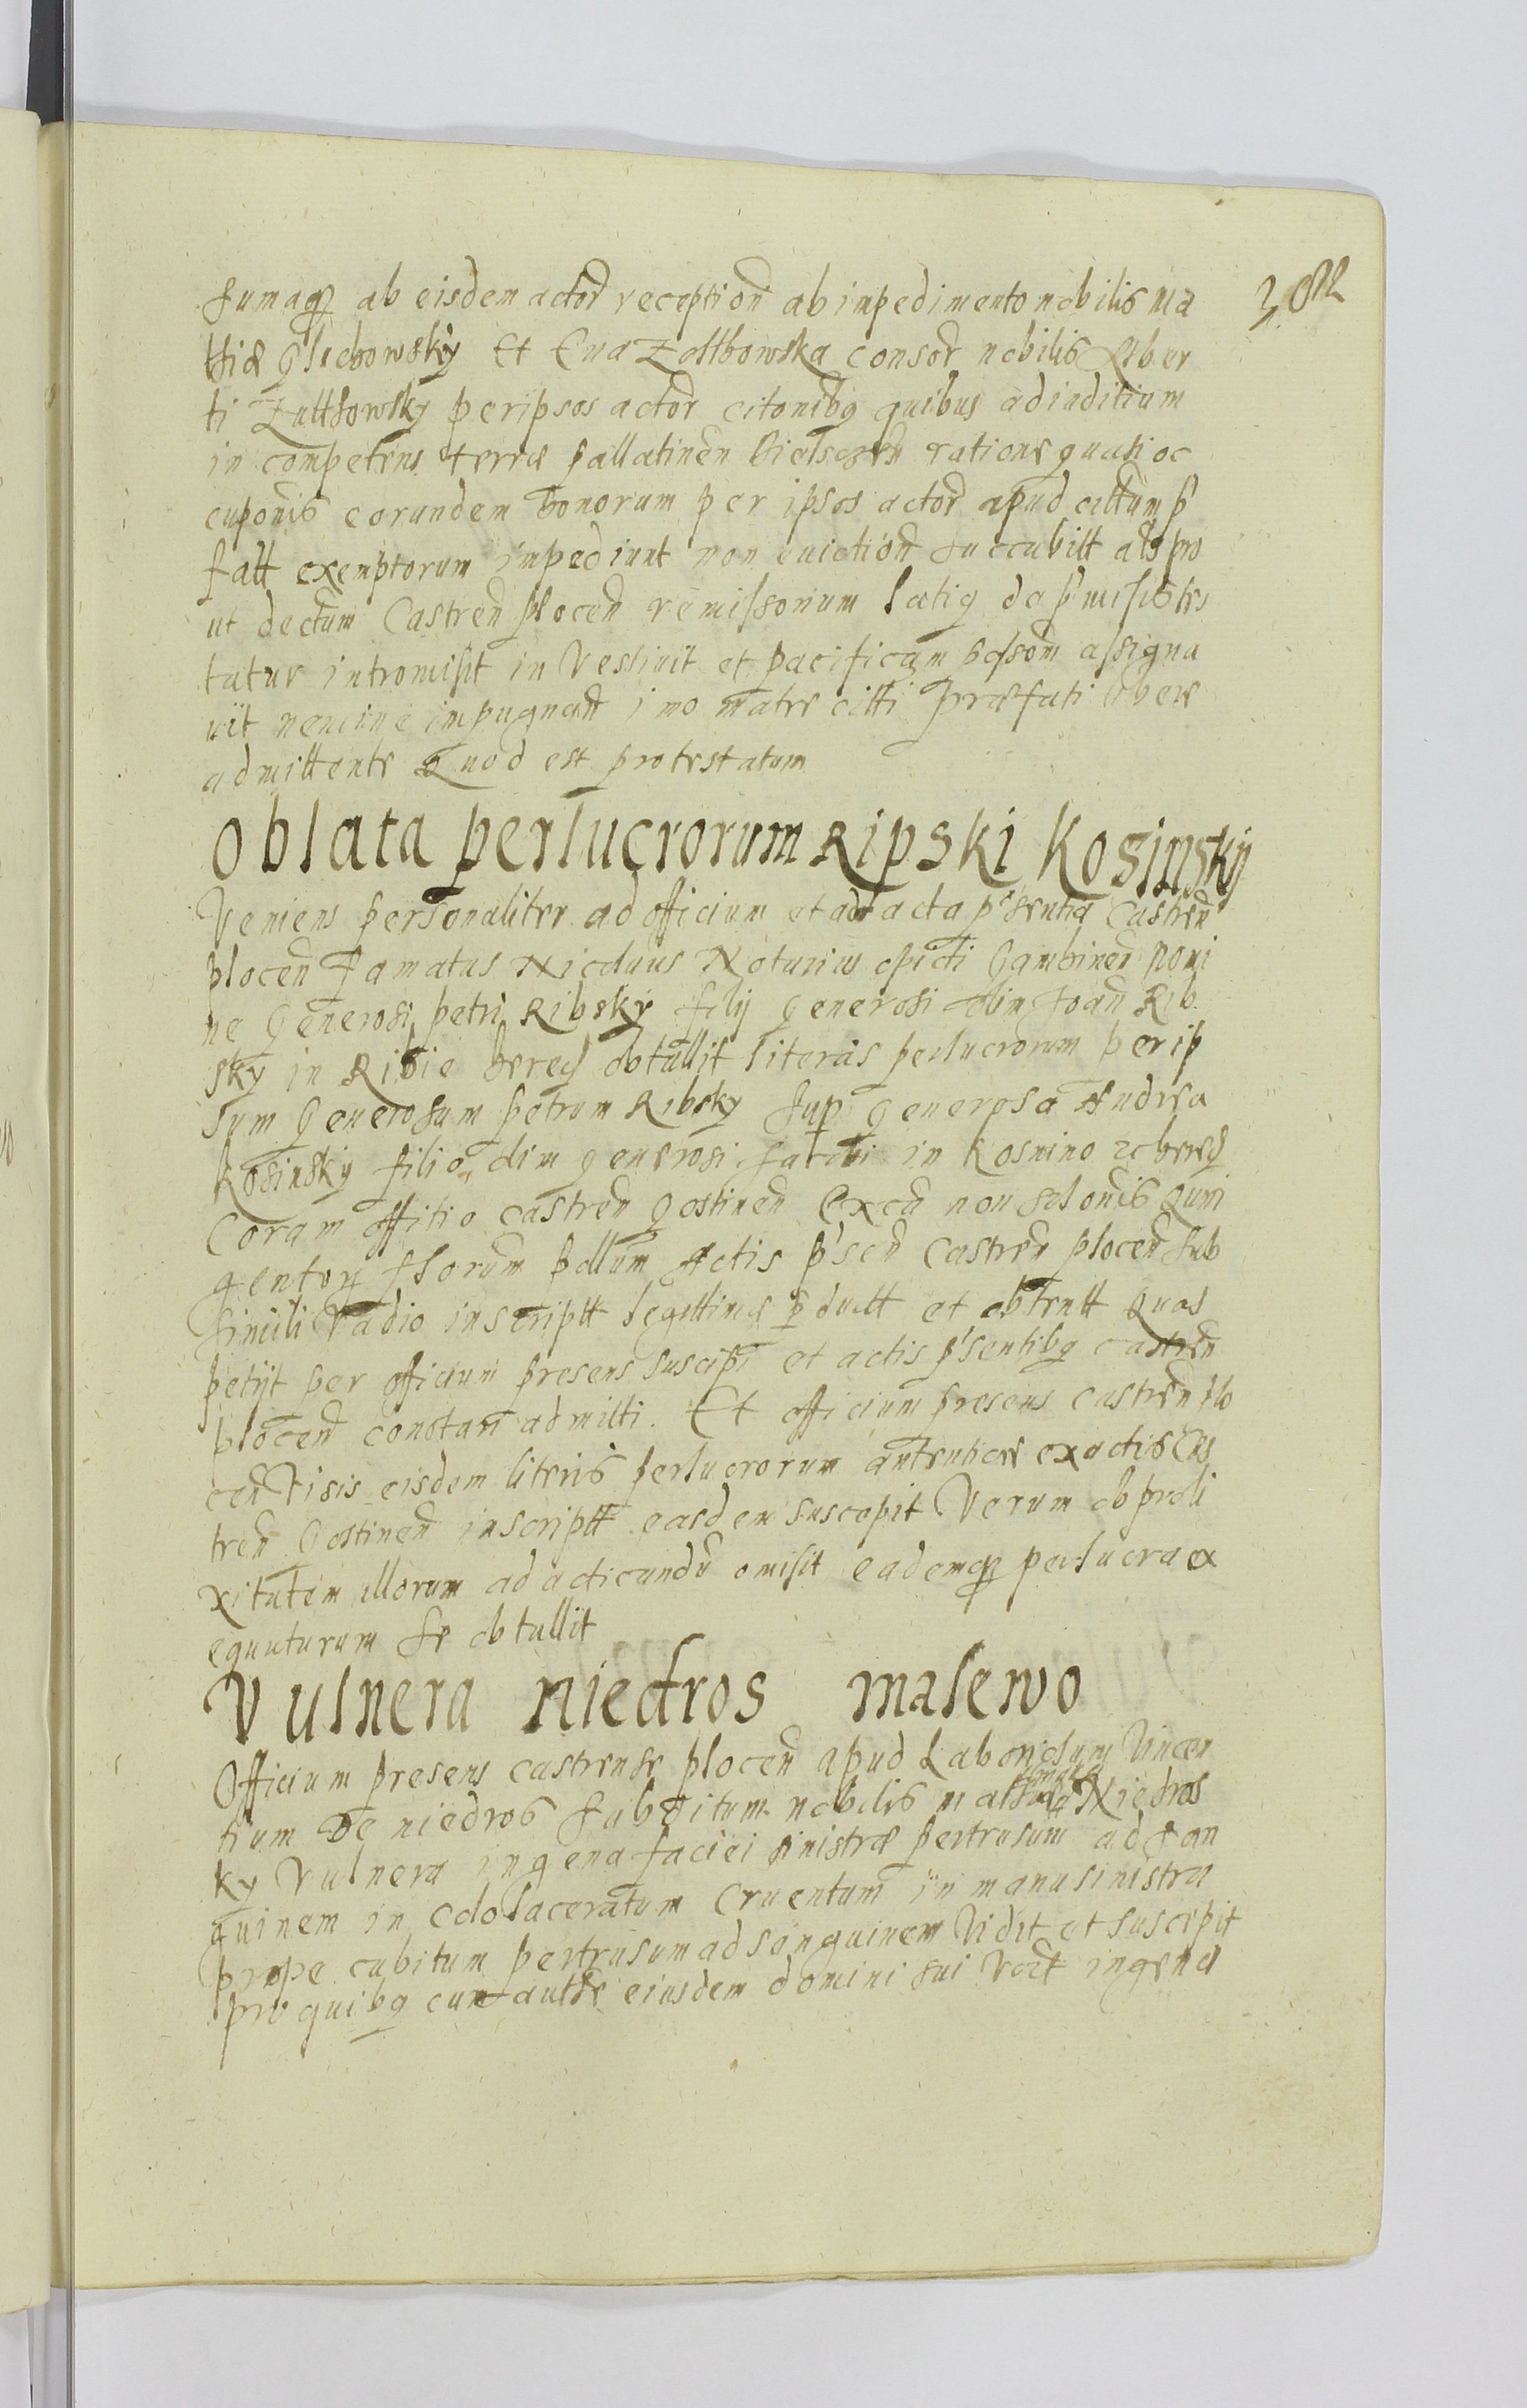 sumaq ab eisdem actor reception ab impedimento nobilis Ma
thiæ Gluchowsky Et Eua Zolthowska consor nobilis Alber
ti Zulthowsky per ipsos actor citonibq quibus ad iuditium
in competens terræ pallatinen Bielscen ratione quasi oc
cuponis eorundem bonorum per ipsos actor apud cittum p
fatt exemptorum impediunt non euiction succubitt als pro
ut dectum Castren plocen remissorium latiq de pmissis tes
tatur intromisit in Vestiuit et pacificam possom assigna
uit nemine impugnan imo matre citti præfati libere
admittente Quod est protestatum
Oblata perlucrorum Ripski Kosinskÿ
Veniens personaliter ad officium et ad acta psentia Castren
plocen Famatus Nicolaus Notarius opidi Gambinen nomi
ne Generosi petri Ribsky filij Generosi olim Joan Rib
sky in Ribie hered obtullit literas perlucrorum per ip
sum Generosum petrum Ribsky sup generosa Andrea
Kosinsky filio olim generosi Jacobi in Kosmino hered
Coram offitio castren Gostinen Ex non solonis quin
gentor florum pollum Actis pscn Castren plocen sub
simili Vadio inscriptt legittime p ductt et obtentt Quas
petijt per officium presens suscipi et actis psentibq castren
plocen constan admitti. Et officium presens Castren plo
cen Visis eisdem literis perlucrorum autentice ex actis Cas
tren Gostinen inscriptt easdem suscepit Verum ob proli
xitatem illorum ad acticandu omisit eademq perlucra ex
equuturum se obtullit
Vulnera niedros malewo
Officium presens castrense plocen apud Laboriosum Vincen
tium De niedros subditum nobilis Niedros
ky Vulnera in gena faciei sinistræ pertrusum ad san
guinem in colo laceratum Cruentum in manu sinistra
prope cubitum pertrusum ad sanguinem Vidit et suscepit
pro quibq cum autte eiusdem domini sui ingena